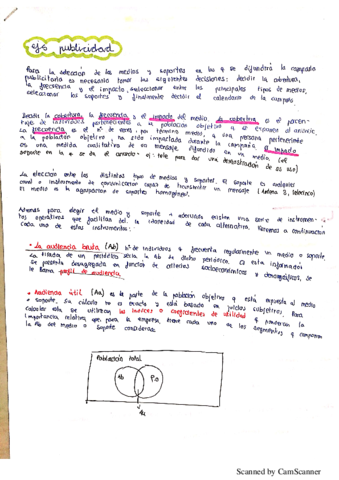 ejs publicidad
Para la selección de los medios y soportes en los q se difundirá la campaña
publicitaria es necesario tomar las siguientes decisiones: decidir la cobertura,
la frecuencia y el impacto, seleccionar entre los principales tipos de medios,
seleccionar los soportes y finalmente decidir el calendario de la campaña.
Decidir la cobertura, la frecuencia y el impacto del medio. La cobertura es el porcen-
taje de individuos pertenecientes a la población objetivo q se exponen al anuncio.
La frecuencia es el nº de veces, por término medio, q una persona perteneciente
a la población objetivo, ha sido impactada durante la campaña. El impacto
es una medida cualitativa de un mensaje difundido en un medio (el
soporte en el q se da el anuncio ej: tele para dar una demostración de su uso)
La elección entre los distintos tipos de medios y soportes, el soporte es cualquier
canal o instrumento de comunicación capaz de transmitir un mensaje (Antena 3, telecinco)
El medio es la agrupación de soportes homogéneos.
Además para elegir el medio y soporte + adecuado existen una serie de instrumen-
tos operativos que facilitan del la idoneidad de cada alternativa. Veremos a continuación
cada uno de estos instrumentos:
• La audiencia bruta (Ab) Nº de individuos q frecuenta regularmente un medio o soporte.
La tirada de un periódico sería la Ab de dicho periódico. Si esta información
se presenta desagregada en función de criterios socioeconómicos y demográficos, se
le llama perfil de audiencia.
• Audiencia útil (Au) es la parte de la población objetivo q está expuesta al medio
o soporte. Su cálculo no es exacto y está basado en juicios subjetivos. Para
calcular esta se utilizan los índices o coeficientes de utilidad q ponderan la
importancia relativa que para la empresa tiene cada uno de los segmentos q componen
la Ab del medio o soporte considerado
Población total
Ab
Po
Au
Scanned by CamScanner